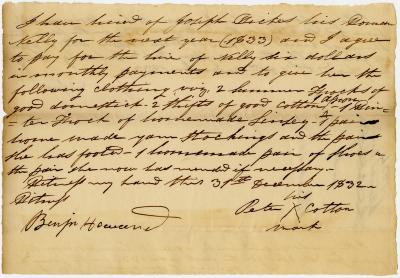 I have hired of Joseph Dickes his woman
Milly for the next year (1833) and I agree
to pay for the hire of Milly six dollars
in monthly payments and to give her the
following clothing viz. 2 summer Frocks of
good domestick 2 shifts of good cotton 1 apron 1 Win-
-ter Frock of homemade Linsey & 1 pair
home made yarn Stockings and the pair
she has footed. 1 homemade pair of Shoes &
the pair she now has mended if necessary.
Witness my hand this 31st December 1832.
Witness his
Benjn Peter X Cotton
mark